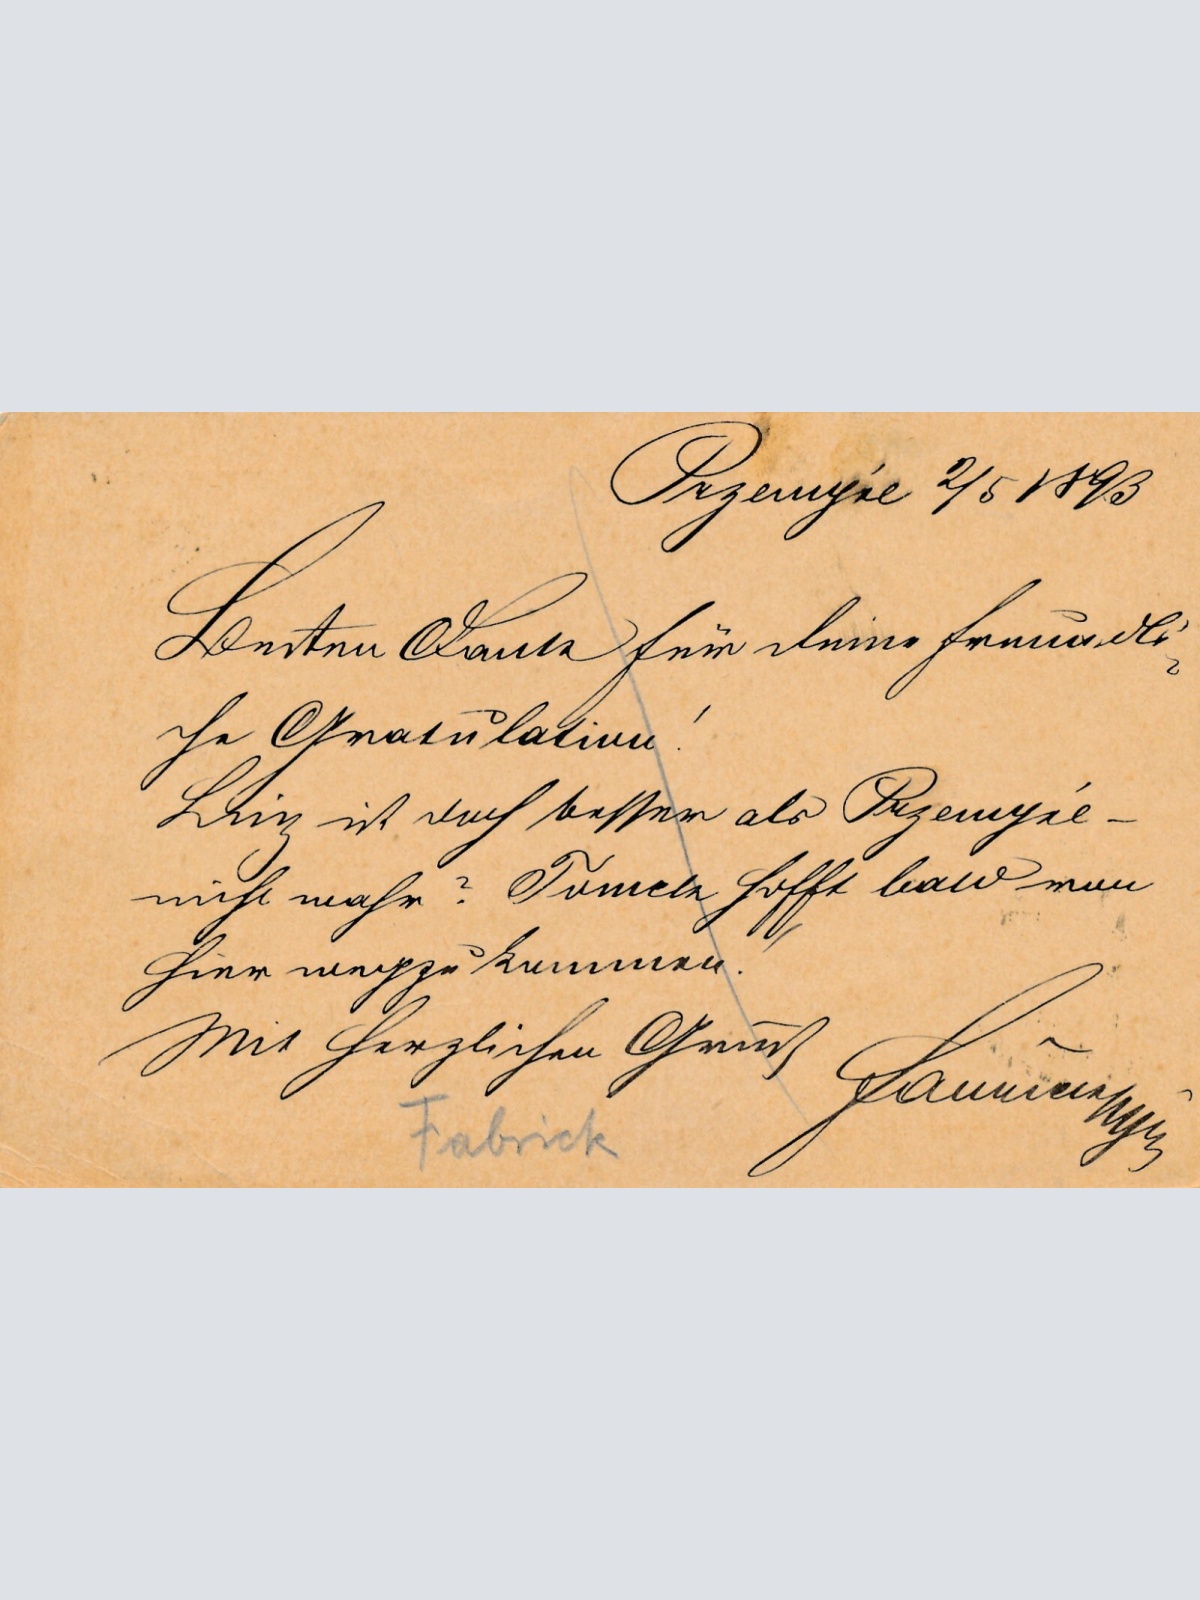 Przemyśl 2/5 1893
Besten Dank für Deine freundli-
che Gratulation!
Linz ist doch besser als Przemyśl –
nicht wahr? Tomek hofft bald von
hier wegzukommen!
Mit herzlichen Gruß
Fabrick